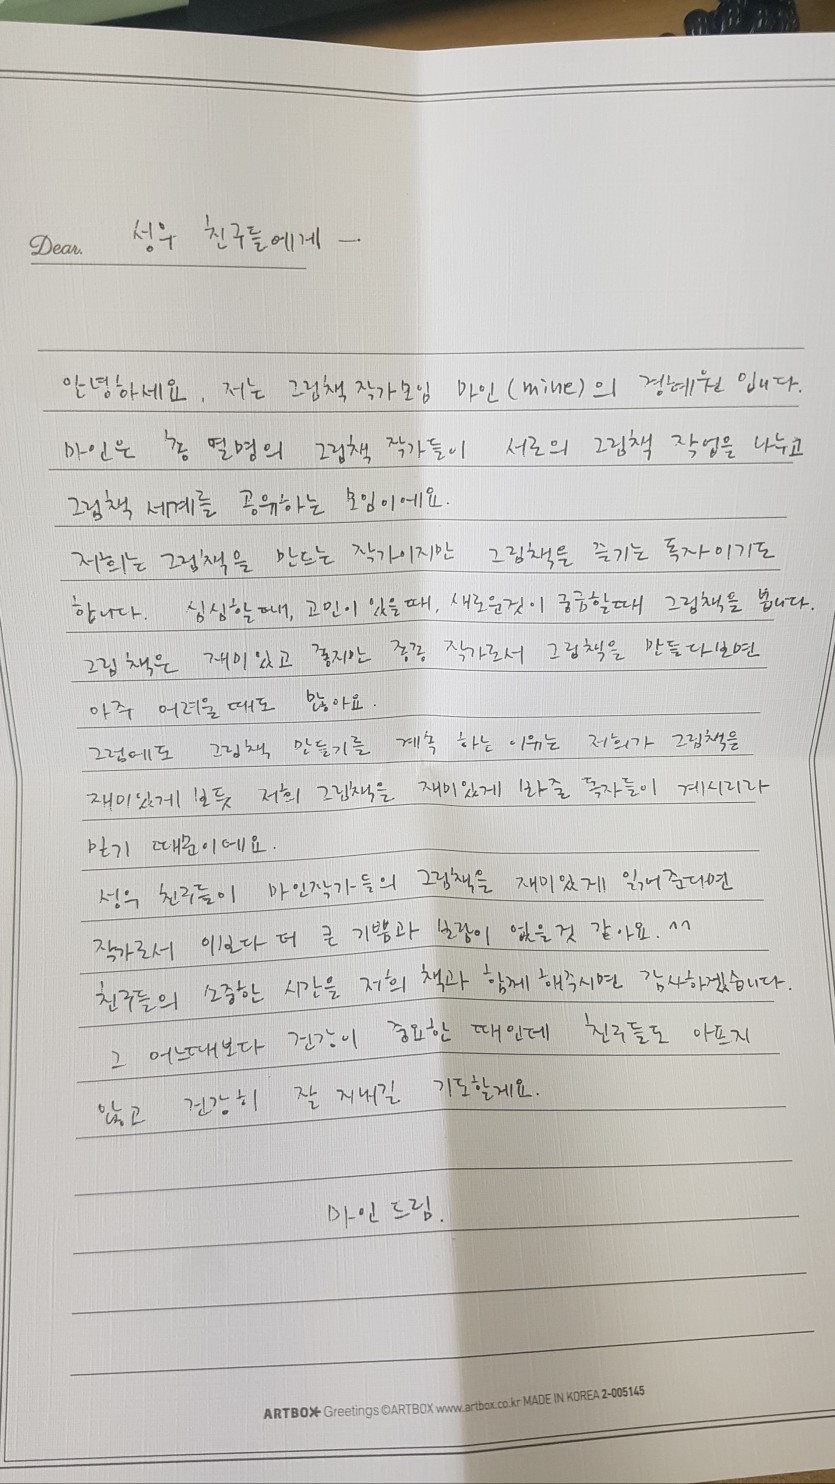 Dear. 성우 친구들에게 —
안녕하세요, 저는 그림책 작가모임 마인(mine)의 경혜원 입니다.
마인은 총 열명의 그림책 작가들이 서로의 그림책 작업을 나누고
그림책 세계를 공유하는 모임이에요.
저희는 그림책을 만드는 작가이지만 그림책을 즐기는 독자이기도
합니다. 심심할때, 고민이 있을때, 새로운것이 궁금할때 그림책을 봅니다.
그림책은 재미있고 좋지만 종종 작가로서 그림책을 만들다보면
아주 어려울때도 많아요.
그럼에도 그림책 만들기를 계속 하는 이유는 저희가 그림책을
재미있게 보듯 저희 그림책을 재미있게 봐줄 독자들이 계시리라
믿기 때문이에요.
성우 친구들이 마인작가들의 그림책을 재미있게 읽어준다면
작가로서 이보다 더 큰 기쁨과 보람이 없을것 같아요. ^^
친구들의 소중한 시간을 저희 책과 함께 해주시면 감사하겠습니다.
그 어느때보다 건강이 중요한 때인데 친구들도 아프지
않고 건강히 잘 지내길 기도할게요.
마인 드림.
ARTBOX Greetings ©ARTBOX www.artbox.co.kr MADE IN KOREA 2-005145